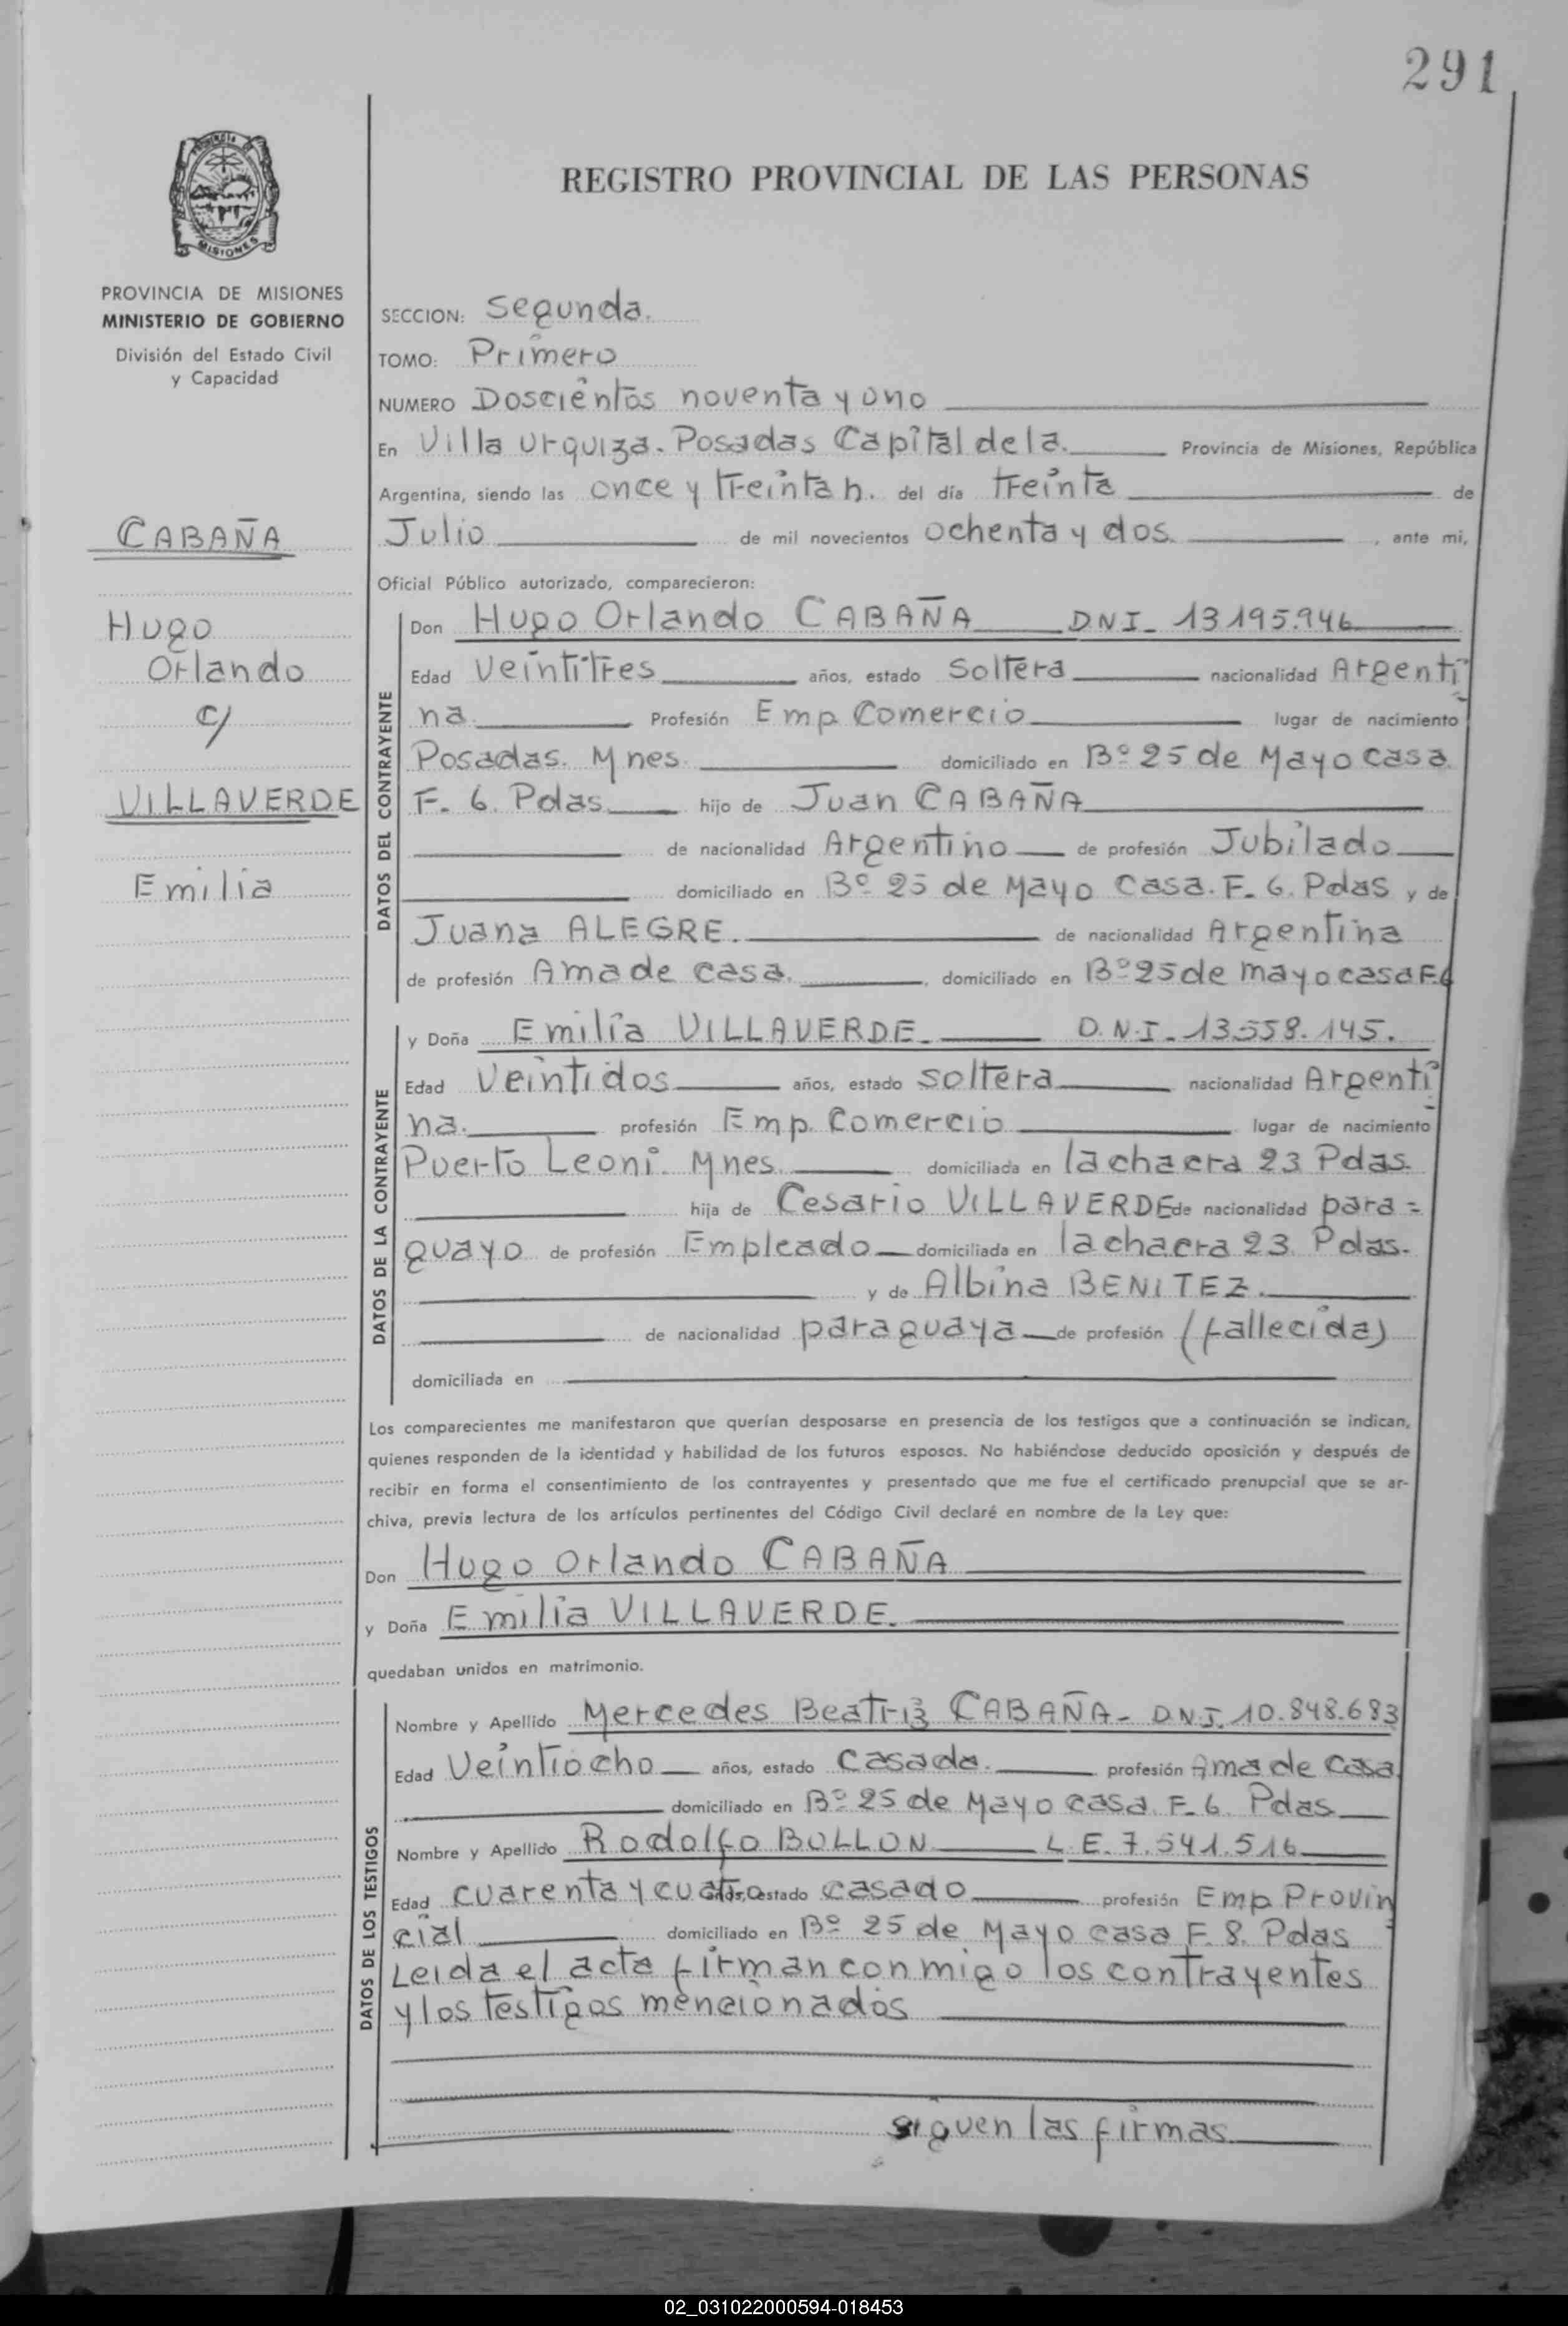 291
PROVINCIA
MISIONES
REGISTRO PROVINCIAL DE LAS PERSONAS
PROVINCIA DE MISIONES
MINISTERIO DE GOBIERNO
División del Estado Civil
y Capacidad
CABAÑA
Hugo
Orlando
c/
VILLAVERDE
Emilia
SECCION: Segunda.
TOMO: Primero
NUMERO Doscientos noventa y uno
En Villa Urquiza. Posadas Capital de la. Provincia de Misiones, República
Argentina, siendo las once y treinta h. del día treinta de
Julio de mil novecientos ochenta y dos. , ante mi,
Oficial Público autorizado, comparecieron:
DATOS DEL CONTRAYENTE
Don Hugo Orlando CABAÑA DNI_ 13195.946
Edad Veintitres años, estado Soltera nacionalidad Argenti
na. Profesión Emp Comercio lugar de nacimiento
Posadas. Mnes. domiciliado en Bº 25 de Mayo casa
F. 6. Pdas hijo de Juan CABAÑA
de nacionalidad Argentino de profesión Jubilado
domiciliado en Bº 25 de Mayo Casa. F. 6. Pdas y de
Juana ALEGRE. de nacionalidad Argentina
de profesión Ama de casa. , domiciliado en Bº 25 de mayo casa F.6
DATOS DE LA CONTRAYENTE
y Doña Emilia VILLAVERDE. D.N.I_13.558.145.
Edad Veintidos años, estado soltera nacionalidad Argenti
na. profesión Emp. Comercio lugar de nacimiento
Puerto Leoni. Mnes. domiciliada en la chacra 23 Pdas.
hija de Cesario VILLAVERDE de nacionalidad para=
guayo de profesión Empleado domiciliada en la chacra 23 Pdas.
y de Albina BENITEZ.
de nacionalidad paraguaya de profesión (fallecida)
domiciliada en
Los comparecientes me manifestaron que querían desposarse en presencia de los testigos que a continuación se indican,
quienes responden de la identidad y habilidad de los futuros esposos. No habiéndose deducido oposición y después de
recibir en forma el consentimiento de los contrayentes y presentado que me fue el certificado prenupcial que se ar-
chiva, previa lectura de los artículos pertinentes del Código Civil declaré en nombre de la Ley que:
Don Hugo Orlando CABAÑA
y Doña Emilia VILLAVERDE.
quedaban unidos en matrimonio.
DATOS DE LOS TESTIGOS
Nombre y Apellido Mercedes Beatriz CABAÑA- D.N.I. 10.848.683
Edad Veintiocho años, estado Casada. profesión Ama de Casa
domiciliado en Bº 25 de Mayo casa F. 6. Pdas
Nombre y Apellido Rodolfo BOLLON L.E. 7.541.516
Edad cuarenta y cuatro años, estado casado profesión Emp Provin
cial domiciliado en Bº 25 de Mayo casa F. 8. Pdas
Leida el acta firman conmigo los contrayentes
y los testigos mencionados
siguen las firmas
02_031022000594-018453